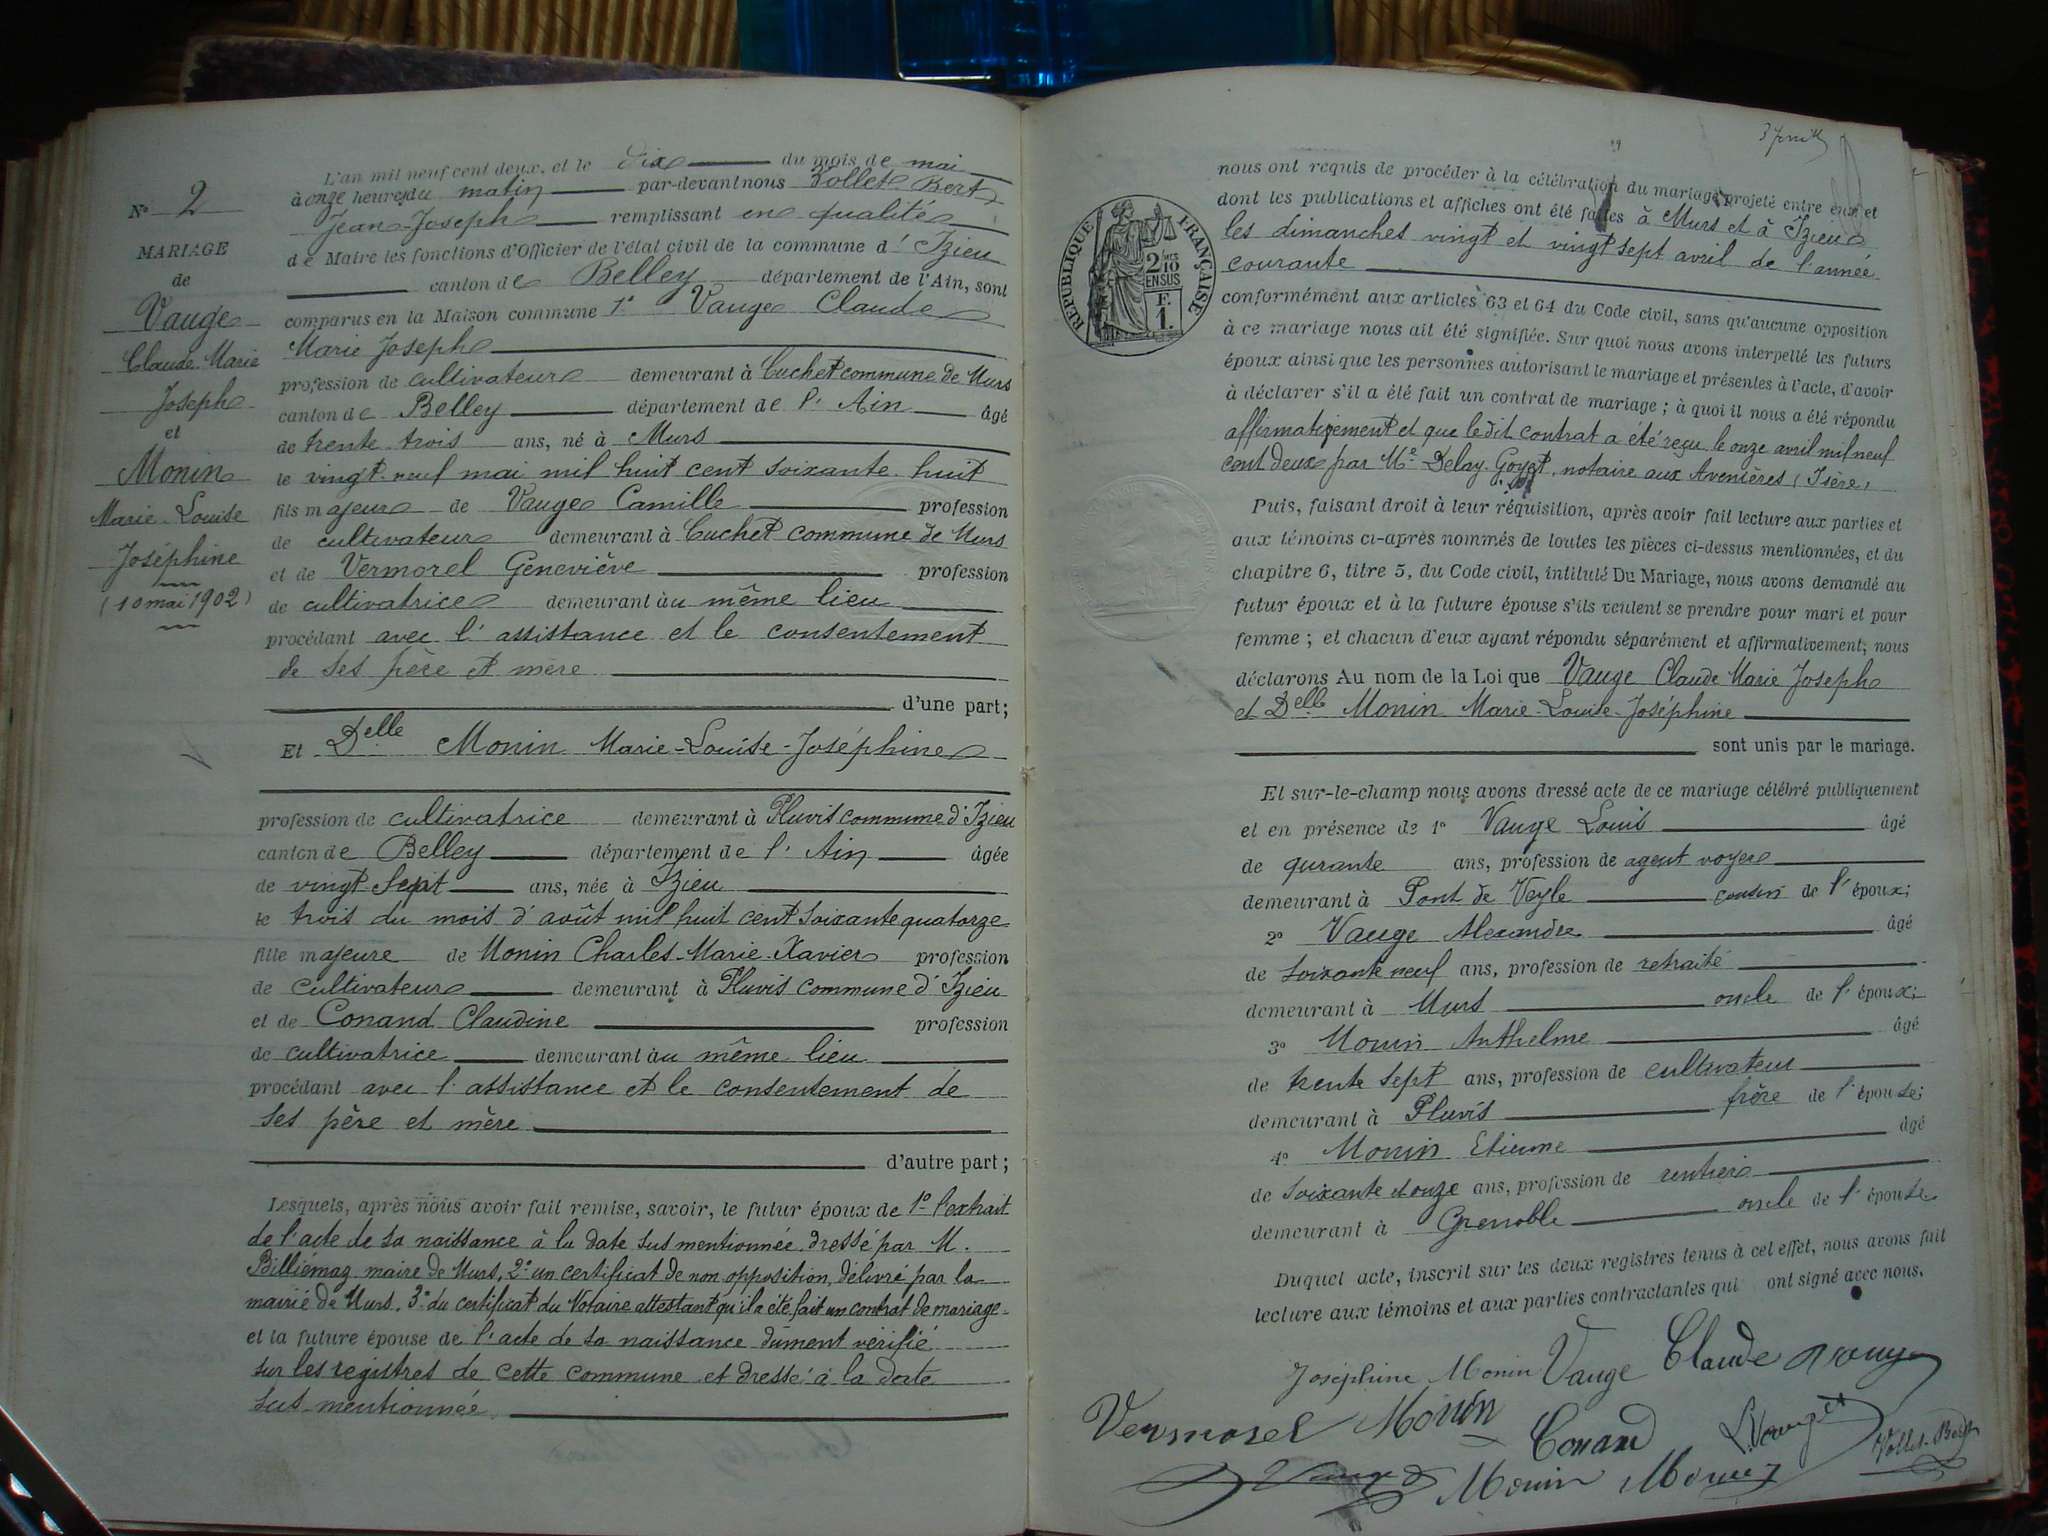 N° 2
MARIAGE
de
Vauge
Claude Marie
Joseph
et
Monin
Marie Louise
Joséphine
(10 mai 1902)
L'an mil neuf cent deux, et le dix du mois de mai
à onze heures du matin par-devant nous Vollet-Bert
Jean-Joseph remplissant en qualité
de Maire les fonctions d'Officier de l'état civil de la commune d'Izieu
canton de Belley département de l'Ain, sont
comparus en la Maison commune 1° Vauge Claude
Marie Joseph
profession de cultivateur demeurant à Cuchet commune de Murs
canton de Belley département de l'Ain âgé
de trente trois ans, né à Murs
le vingt-neuf mai mil huit cent soixante huit
fils majeur de Vauge Camille profession
de cultivateur demeurant à Cuchet commune de Murs
et de Vermorel Geneviève profession
de cultivatrice demeurant au même lieu
procédant avec l'assistance et le consentement
de ses père et mère
d'une part;
Et Delle Monin Marie-Louise-Joséphine
profession de cultivatrice demeurant à Pluvis commune d'Izieu
canton de Belley département de l'Ain âgée
de vingt sept ans, née à Izieu
le trois du mois d'août mil huit cent soixante quatorze
fille majeure de Monin Charles-Marie-Xavier profession
de cultivateur demeurant à Pluvis commune d'Izieu
et de Conand Claudine profession
de cultivatrice demeurant au même lieu
procédant avec l'assistance et le consentement de
ses père et mère
d'autre part;
Lesquels, après nous avoir fait remise, savoir, le futur époux de 1° l'extrait
de l'acte de sa naissance à la date sus mentionnée dressé par M.
Billiémaz maire de Murs, 2° un certificat de non opposition, délivré par la
mairie de Murs. 3° du certificat du Notaire attestant qu'il a été fait un contrat de mariage
et la future épouse de l'acte de sa naissance dûment vérifié
sur les registres de cette commune et dressé à la date
sus-mentionnée
RÉPUBLIQUE FRANÇAISE
2/10
EN SUS
F.
1.
nous ont requis de procéder à la célébration du mariage projeté entre eux et
dont les publications et affiches ont été faites à Murs et à Izieu
les dimanches vingt et vingt sept avril de l'année
courante
conformément aux articles 63 et 64 du Code civil, sans qu'aucune opposition
à ce mariage nous ait été signifiée. Sur quoi nous avons interpellé les futurs
époux ainsi que les personnes autorisant le mariage et présentes à l'acte, d'avoir
à déclarer s'il a été fait un contrat de mariage; à quoi il nous a été répondu
affirmativement et que ledit contrat a été reçu le onze avril mil neuf
cent deux par Me Delay-Goyet, notaire aux Avenières (Isère)
Puis, faisant droit à leur réquisition, après avoir fait lecture aux parties et
aux témoins ci-après nommés de toutes les pièces ci-dessus mentionnées, et du
chapitre 6, titre 5, du Code civil, intitulé Du Mariage, nous avons demandé au
futur époux et à la future épouse s'ils veulent se prendre pour mari et pour
femme; et chacun d'eux ayant répondu séparément et affirmativement, nous
déclarons Au nom de la Loi que Vauge Claude Marie Joseph
et Delle Monin Marie-Louise-Joséphine
sont unis par le mariage.
Et sur-le-champ nous avons dressé acte de ce mariage célébré publiquement
et en présence de 1° Vauge Louis âgé
de qurante ans, profession de agent voyer
demeurant à Pont de Veyle cousin de l'époux;
2° Vauge Alexandre âgé
de soixante neuf ans, profession de retraité
demeurant à Murs oncle de l'époux;
3° Monin Anthelme âgé
de trente sept ans, profession de cultivateur
demeurant à Pluvis frère de l'épouse;
4° Monin Etienne âgé
de soixante et onze ans, profession de rentier
demeurant à Grenoble oncle de l'épouse
Duquel acte, inscrit sur les deux registres tenus à cet effet, nous avons fait
lecture aux témoins et aux parties contractantes qui ont signé avec nous.
Joséphine Monin Vauge Claude Vauge
Vermorel Monin Conand L. Vauge Vollet-Bert
Vauge Monin Monin